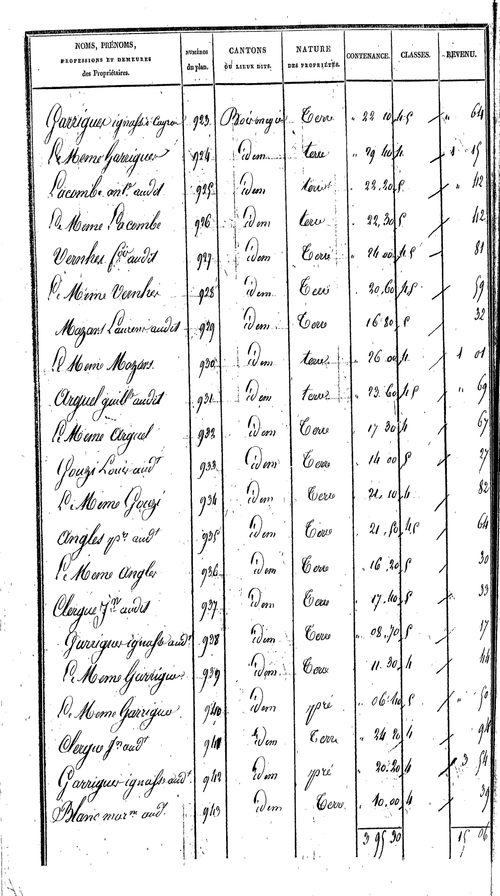 NOMS, PRÉNOMS, PROFESSIONS ET DEMEURES des Propriétaires. NUMÉROS du plan. CANTONS OU LIEUX DITS. NATURE DES PROPRIÉTÉS. CONTENANCE. CLASSES. REVENU.
Garrigues ignasse à Cayron 923 Terre " 22 10 4,5 " 64
Le Meme Garrigues 924 idem terre " 29 40 4 1 15
Lacombe ant.e audit 925 idem terre " 22.20 5 " 42
Le Meme Lacombe 926 idem terre " 22.30 5 42
Vernhes audit 927 idem Terre " 24 00 4,5 81
Le Meme Vernhes 928 idem Terre " 20.60 4,5 59
Mazars Laurens audit 929 idem Terre 16 80 5 32
Le Meme Mazars 930 idem terre " 26 00 4 1 01
Arguel guil.e audit 931 idem terre " 23.60 4,5 " 69
Le Meme Arguel 932 idem Terre " 17 30 4 67
Gouzi Louis aud.t 933 idem Terre " 14 00 5 27
Le Meme Gouzi 934 idem Terre " 21.10 4 82
Angles p.re aud.t 935 idem Terre " 21.50 4,5 64
Le Meme Angles 936 idem Terre " 16.20 5 30
Clergue J.n audit 937 idem Terre " 17.40 5 33
Garrigues ignasse aud.t 938 idem Terre " 08.70 5 17
Le Meme Garrigues 939 idem Terre 11.30 4 44
Le Meme Garrigues 940 idem pré " 06 40 5 " 50
Clergue J.n aud.t 941 idem Terre " 24 20 4 94
Garrigues ignasse aud.t 942 idem pré " 20.20 4 3 54
Blanc aud.t 943 idem Terre " 10.00 4 39
3 95 30 15 06